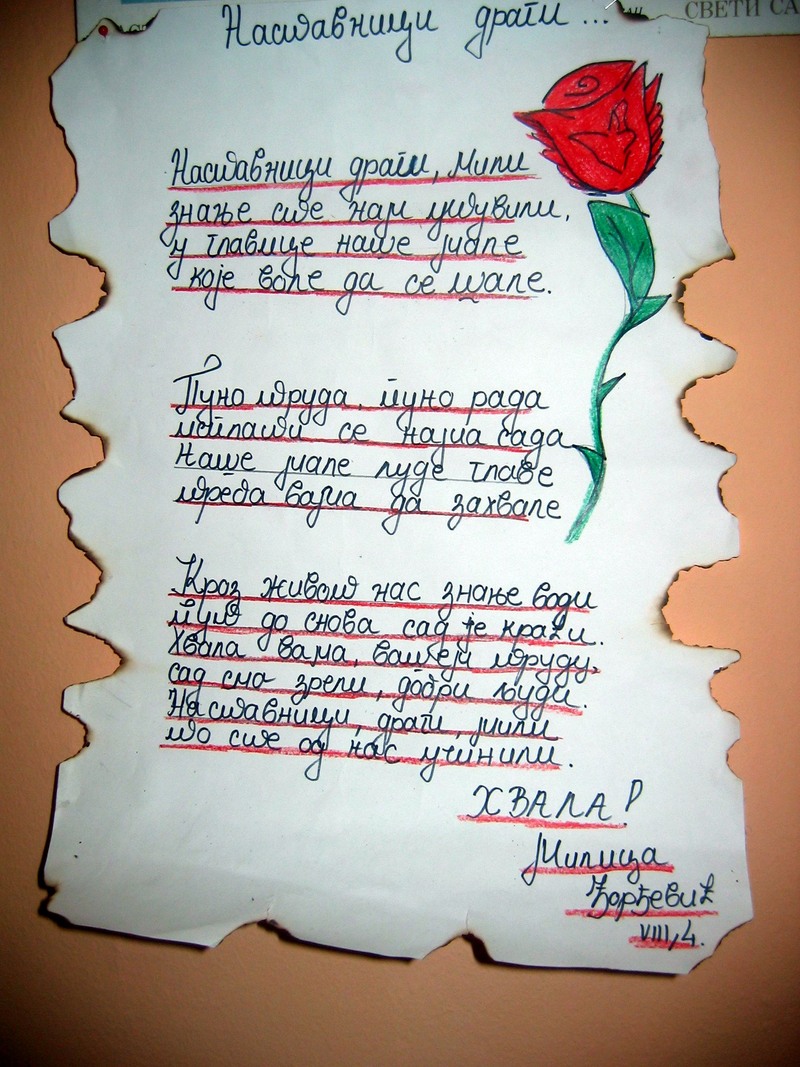 СВЕТИ СА
Наставници драги ...
Наставници драги, мили
знање сте нам утувили,
у главице наше мале
које воле да се шале.
Пуно труда, пуно рада
исплати се најпа сада
Наше мале луде главе
треба вама да захвале
Кроз живот нас знање води
пут до снова сад је краћи.
Хвала вама, вашем труду,
сад смо зрели, добри људи.
Наставници, драги, мили
то сте од нас учинили.
ХВАЛА!
Милица
Ђорђевић
VIII,4.